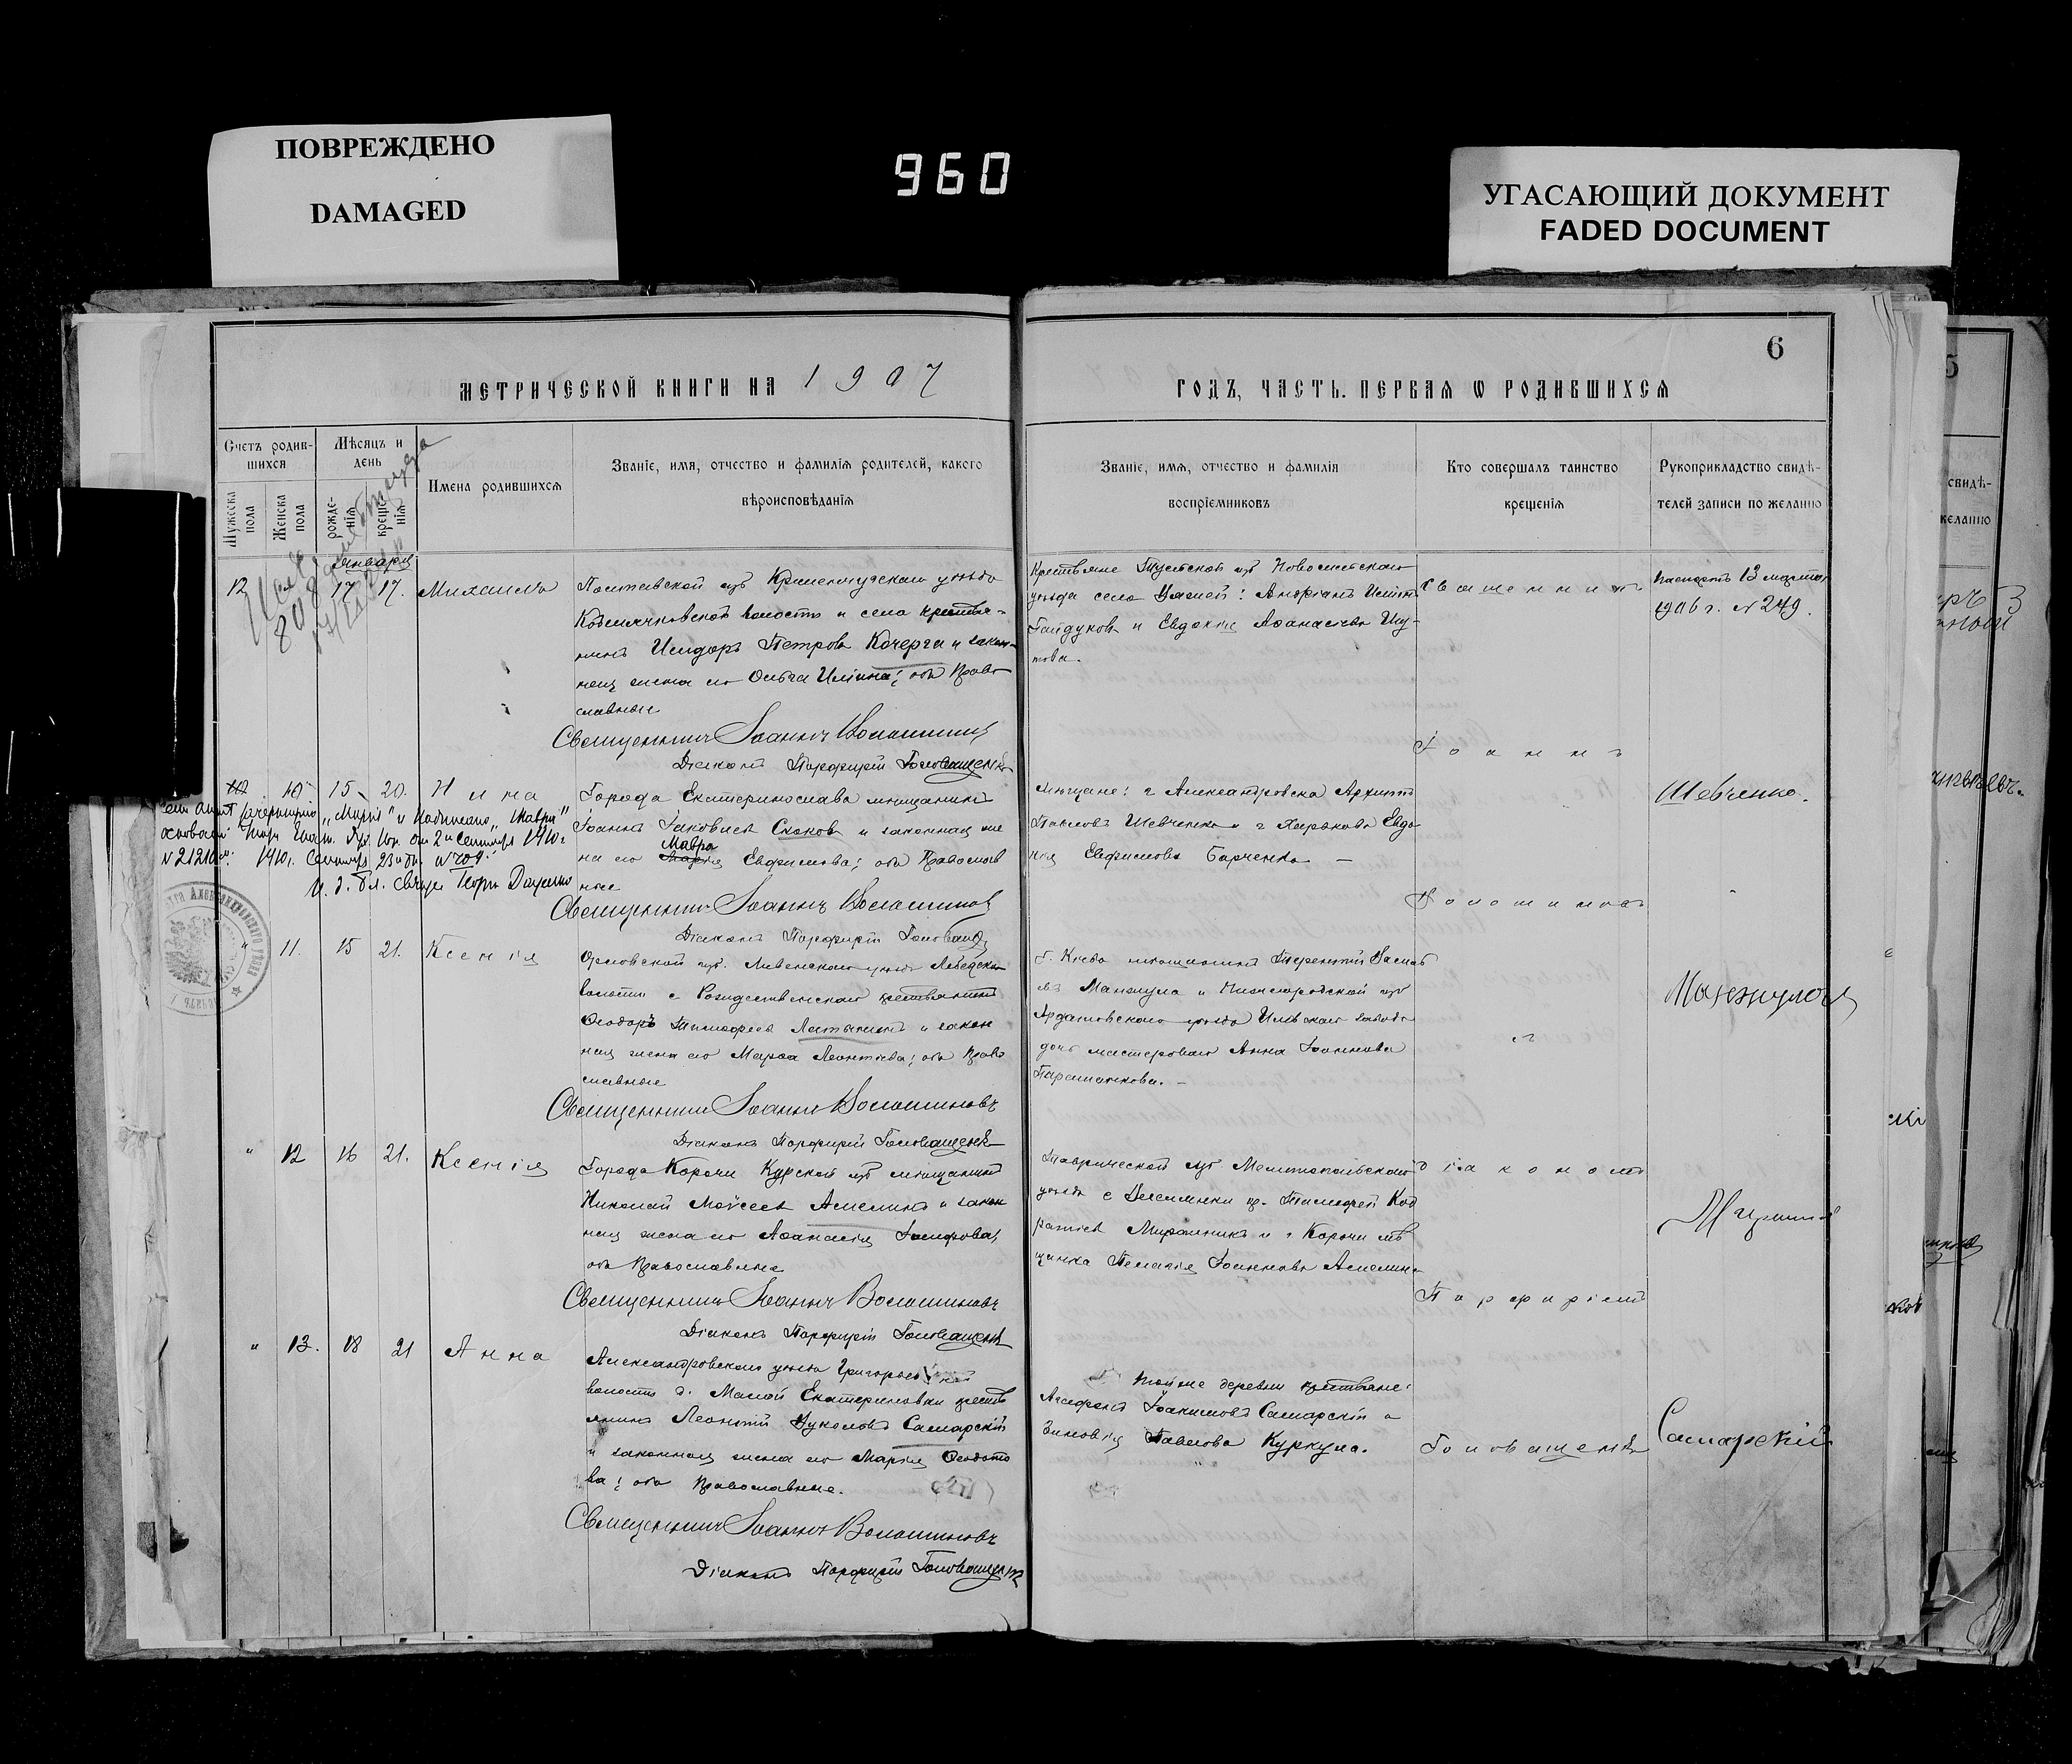 ПОВРЕЖДЕНО
DAMAGED
960
УГАСАЮЩИЙ ДОКУМЕНТ
FADED DOCUMENT
6
МЕТРИЧЕСКОЙ КНИГИ НА 1907
ГОДЪ, ЧАСТЬ ПЕРВАЯ Ѡ РОДИВШИХСЯ
Счетъ родив-
шихся
Мужеска пола
Женска пола
Мѣсяцъ и
день
рожде-
нія
креще-
нія
Имена родившихся
Званіе, имя, отчество и фамилія родителей, какого
вѣроисповѣданія
Званіе, имя, отчество и фамилія
воспріемниковъ
Кто совершалъ таинство
крещенія
Рукоприкладство свидѣ-
телей записи по желанію
Январь
12 17 17. Михаилъ
Полтавской губ Кременчугскаго уѣзда
волости и села крестья-
нинъ Исидоръ Петровъ Кочерга и закон-
ная жена его Ольга Ильина; оба Право
славные
Священникъ Іоаннъ Волошиновъ
Діаконъ Порфирій Головащенко
Крестьяне Тульской губ Новосильскаго
уѣзда села
Гайдуковъ и Евдокія Аѳанасіева Шу-
това.
Священникъ
Іоаннъ
Паспортъ 13 марта
1906 г. № 249.
10 15 20. Нина
Города Екатеринослава мѣщанинъ
Іоаннъ Іаковлевъ Сконов и законная же
на его Мавра Евфимова; оба Православ
ные
Священникъ Іоаннъ Волошиновъ
Діаконъ Порфирій Головащ
Мѣщане: г Александровска Архиппъ
Павловъ Шевченко и г Харькова Евдо
кія Евфимова Барченко —
Волошиновъ
Шевченко.
зачеркнуто „Марія" и надписано „Мавра"
№ 21210 1910 г. Сентября 23 дн. № 709.
" 11. 15 21. Ксенія
Орловской губ. Ливенскаго уѣзда
волости с Рождественскаго крестьянинъ
Ѳеодоръ Тимоѳеевъ Латынинъ и закон
ная жена его Марѳа Леонтіева; оба Право
славные
Священникъ Іоаннъ Волошиновъ
Діаконъ Порфирій Головащенко
г. Кіева мѣщанинъ Терентій Васильев
Манжула и Нижегородской губ
Ардатовскаго уѣзда Илевскаго завода
дочь мастероваго Анна Іоаннова
Паршанкова. —
и
Манжула
" 12 16 21. Ксенія
Города Корочи Курской губ мѣщанинъ
Николай Моѵсеевъ Амелинъ и закон
ная жена его Аѳанасія
оба Православные
Священникъ Іоаннъ Волошиновъ
Діаконъ Порфирій Головащенко
Таврической губ. Мелитопольскаго
уѣзда с кр. Тимоѳей Код
ратіев Мирошник и г Корочи мѣ
щанка Пелагія Іоаннова Амелина
діакономъ
Порфиріемъ
" 13. 18 21 Анна
Александровскаго уѣзда Григорьевской
волости д. Малой Екатериновки кресть
янинъ Леонтій Самарскій
и законная жена его Марія Ѳеодото
ва; оба Православные.
Священникъ Іоаннъ Волошиновъ
Діаконъ Порфирій Головащенко
Тойже деревни крестьяне:
Іоакимовъ Самарскій и
Зиновія Павлова Куркула.
Головащенко
Самарскій
5
свидѣ-
желанію